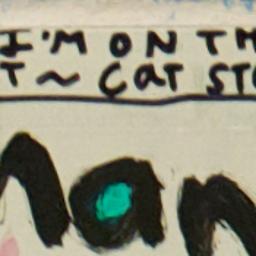 I'M ON TH
T ~ CaT ST
Man